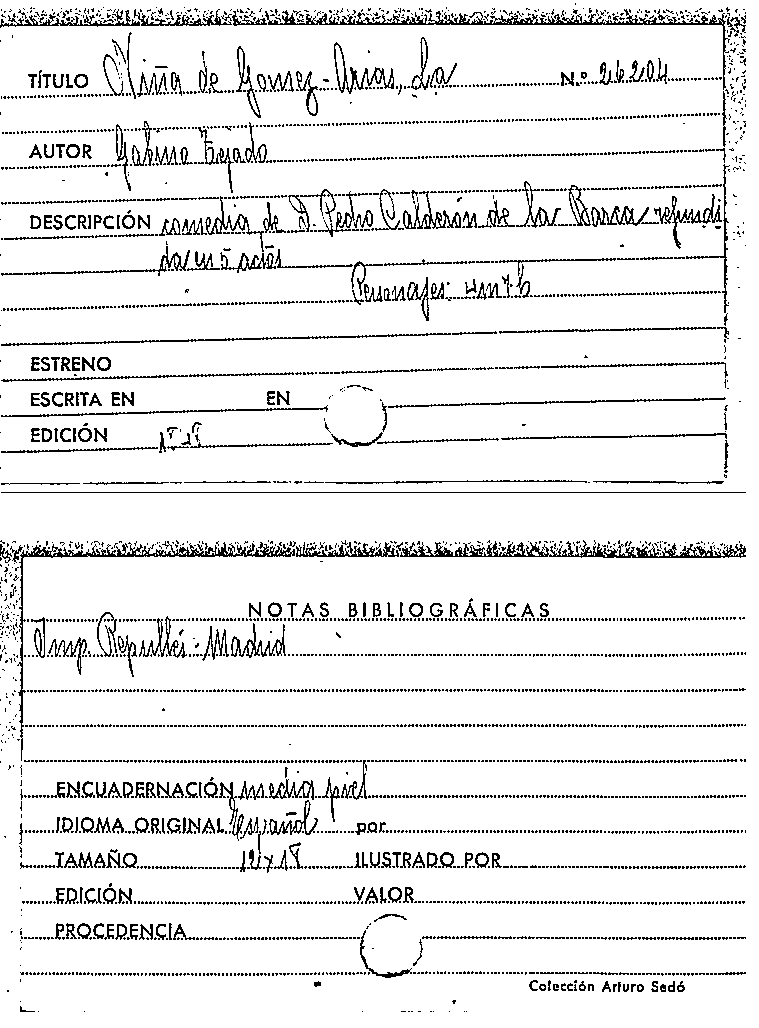 TÍTULO Niña de Gomez-Arias, La N.º 26204
AUTOR Gabino Tejado
DESCRIPCIÓN comedia de D. Pedro Calderón de la Barca refundi
da en 5 actos
Personajes: 4m 7h
ESTRENO
ESCRITA EN EN
EDICIÓN
NOTAS BIBLIOGRÁFICAS
Imp. Repullés - Madrid
ENCUADERNACIÓN media piel
IDIOMA ORIGINAL Español por
TAMAÑO ILUSTRADO POR
EDICIÓN VALOR
PROCEDENCIA
Colección Arturo Sedó